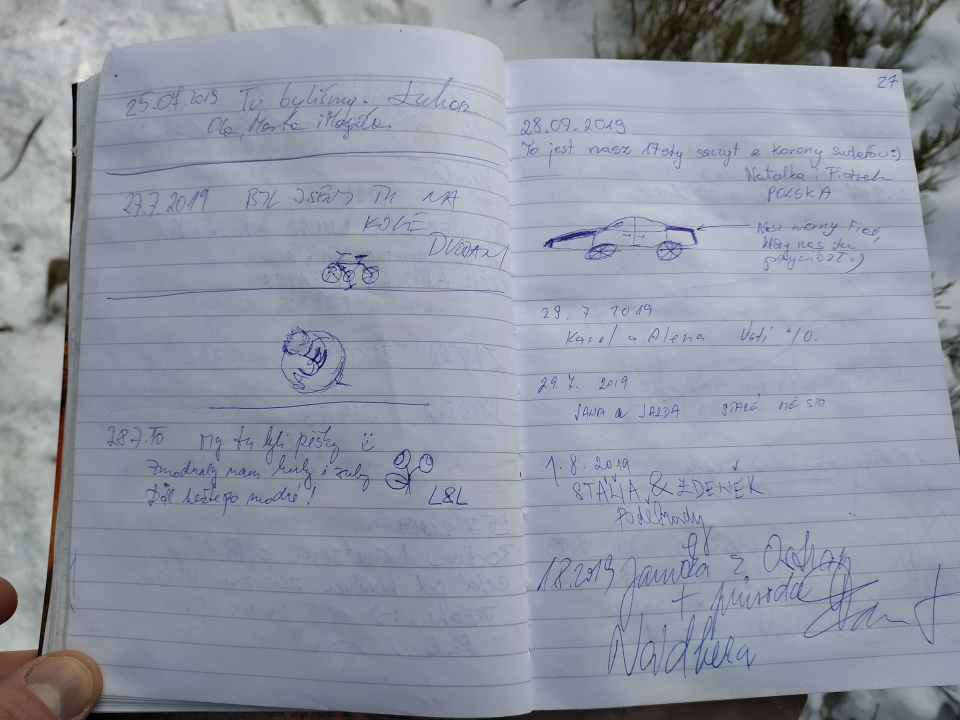 25.07.2019 Tu byliśmy.
Ola, Marta i Magda.
27.7.2019 BYL JSEM TU NA
KOLE
28.7.19 My tu byli pěšky
Zmodraly nám huby i zuby
Dál běžte po modré!
L&L
27
28.07.2019
To jest nasz 17sty szczyt z Korony Sudetów :)
Natalka i Piotrek
POLSKA
Nasz wierny Fiat,
który nas tu
przywiózł :)
29. 7. 2019
Karel a Alena Ústí n/O.
29.7. 2019
JANA a JARDA STARÉ MĚSTO
1. 8. 2019
STÁŇA & ZDENĚK
Poděbrady
1.8.2019 Jarmila z Ostravy
+ příroda
Nádhera